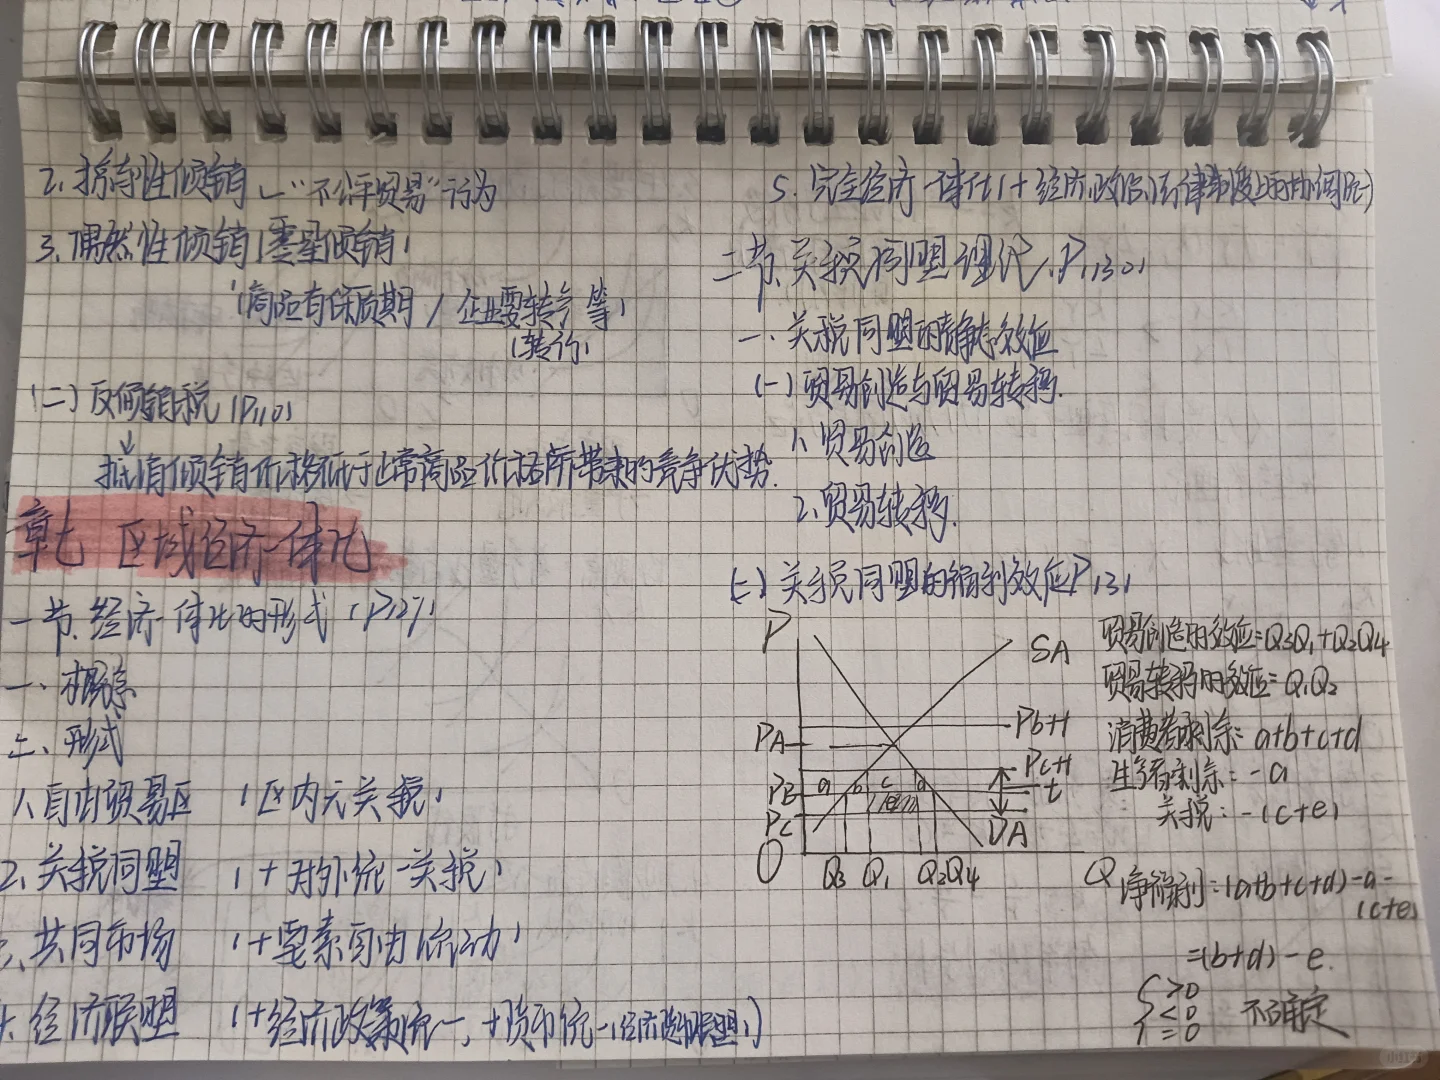 2. 掠夺性倾销 ✓ "不公平贸易"行为
3. 偶然性倾销(零星倾销)
(商品有保质期 / 企业要转产等)
(转行)
(二) 反倾销税 (P110)
↓
抵消倾销价格低于正常商品价格所带来的竞争优势.
章七 区域经济一体化
一节. 经济一体化的形式 (P127)
一、概念
二、形式
1. 自由贸易区 (区内无关税)
2. 关税同盟 (+对外统一关税)
3. 共同市场 (+要素自由流动)
4. 经济联盟 (+经济政策统一, +货币统一(经济货币联盟))
5. 完全经济一体化(+经济、政治、法律制度上的协调统一)
二节. 关税同盟理论. P130
一. 关税同盟的静态效应
(一) 贸易创造与贸易转移.
1. 贸易创造
2. 贸易转移.
(二) 关税同盟的福利效应 P131
P
SA
Pb+t
PA
Pc+t
PB
t
PC
DA
a b c d
e
O Q3 Q1 Q2 Q4 Q
贸易创造的效应=Q3Q1+Q2Q4
贸易转移的效应=Q1Q2
消费者剩余: a+b+c+d
生产者剩余: -a
关税: -(c+e)
净福利=(a+b+c+d)-a-
(c+e)
=(b+d)-e.
>0
<0 不确定
=0
小红书